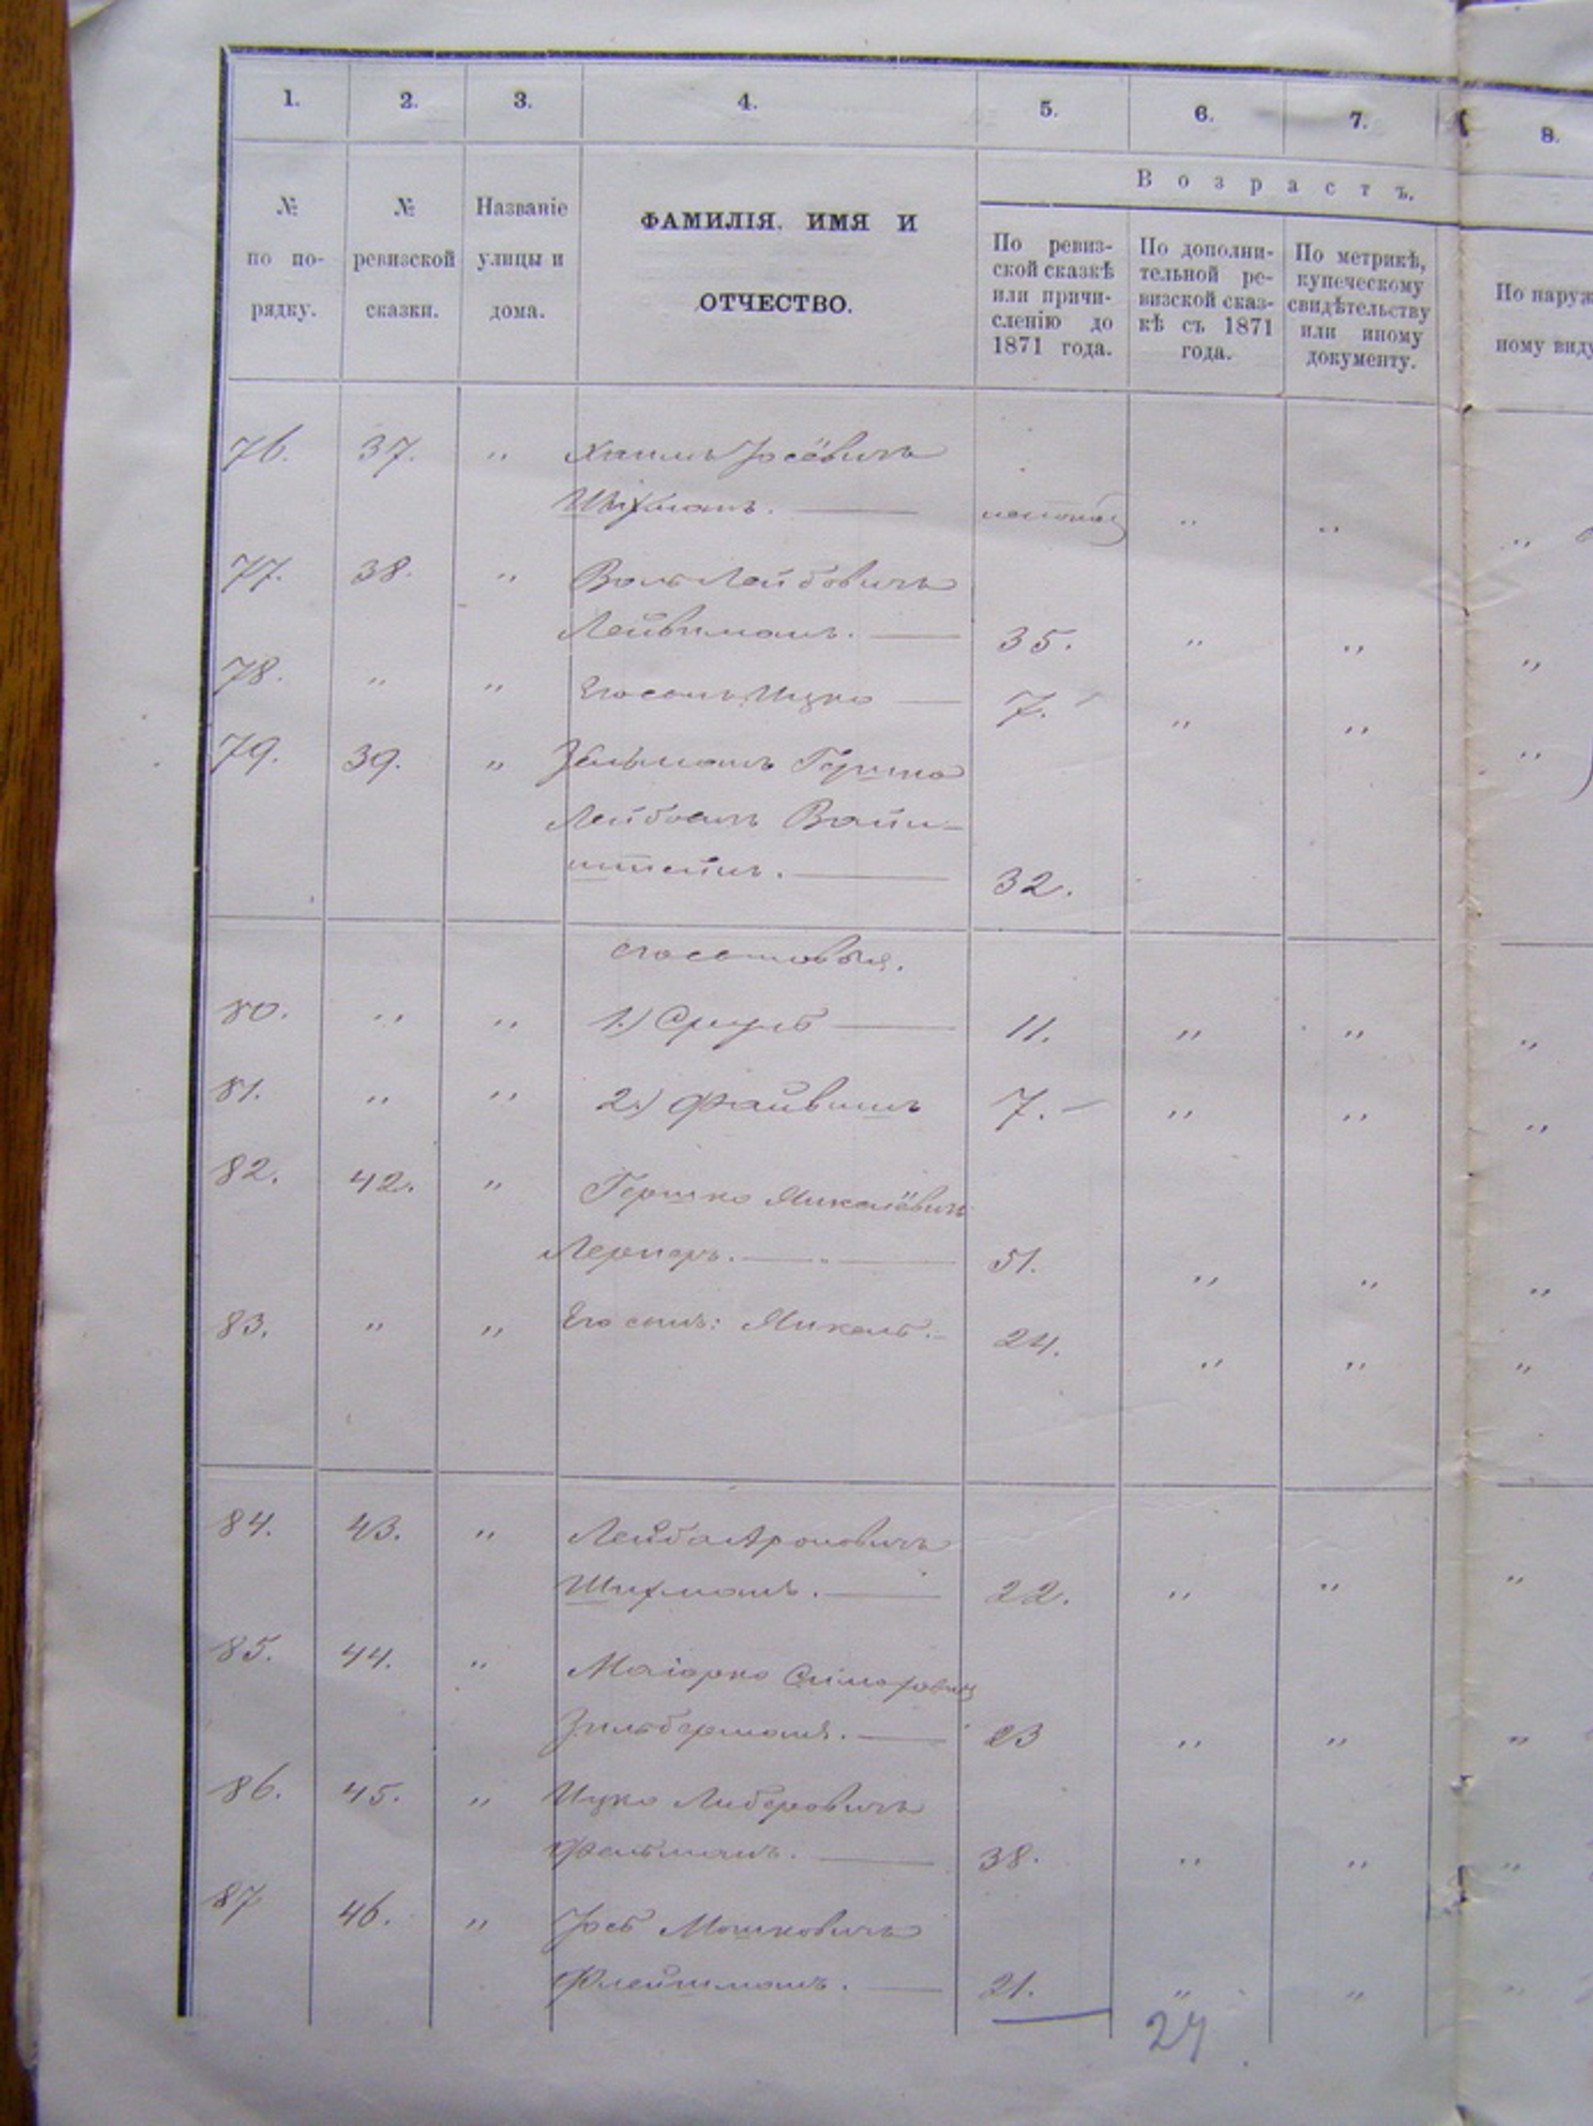 1. 2. 3. 4. 5. 6. 7. 8.
В о з р а с т ъ.
№ по по- рядку.
№ ревизской сказки.
Названіе улицы и дома.
ФАМИЛІЯ, ИМЯ И
ОТЧЕСТВО.
По ревиз- ской сказкѣ или причи- сленію до 1871 года.
По дополни- тельной ре- визской сказ- кѣ съ 1871 года.
По метрикѣ, купеческому свидѣтельству или иному документу.
По наруж ному виду
76. 37. „ Хаимъ Іосёвичъ
Шихманъ. — „ „ „
77. 38. „ Воль Лейбовичъ
Лейвиманъ. — 35. „ „ „
78. „ „ Его сынъ Ицко — 7. „ „ „
79. 39. „ Зельманъ Гершко
Лейбовъ Вайн-
штейнъ. — 32. „
Его сыновья.
80. „ „ 1.) Сруль — 11. „ „ „
81. „ „ 2.) Файвишъ 7. – „ „ „
82. 42. „ Гершко Микелёвичъ
Лернеръ. — 51. „ „ „
83. „ „ Его сынъ: Микель. – 24. „ „ „
84. 43. „ Лейба Ароновичъ
Шихманъ. — 22. „ „ „
85. 44. „ Маіорко
Зильберманъ. — 23 „ „ „
86. 45. „ Ицко Либеровичъ
Фельманъ. — 38. „ „ „
87 46. „ Іось Мошковичъ
Флейшманъ. — 21. „ „ „
24